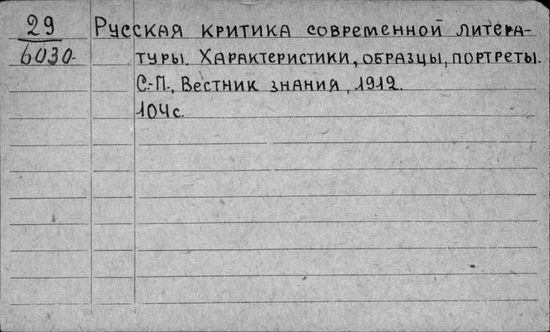 29 Русская критика современной литера-
6030. туры. Характеристики, образцы, портреты.
С.-П., Вестник знания, 1912.
104с.